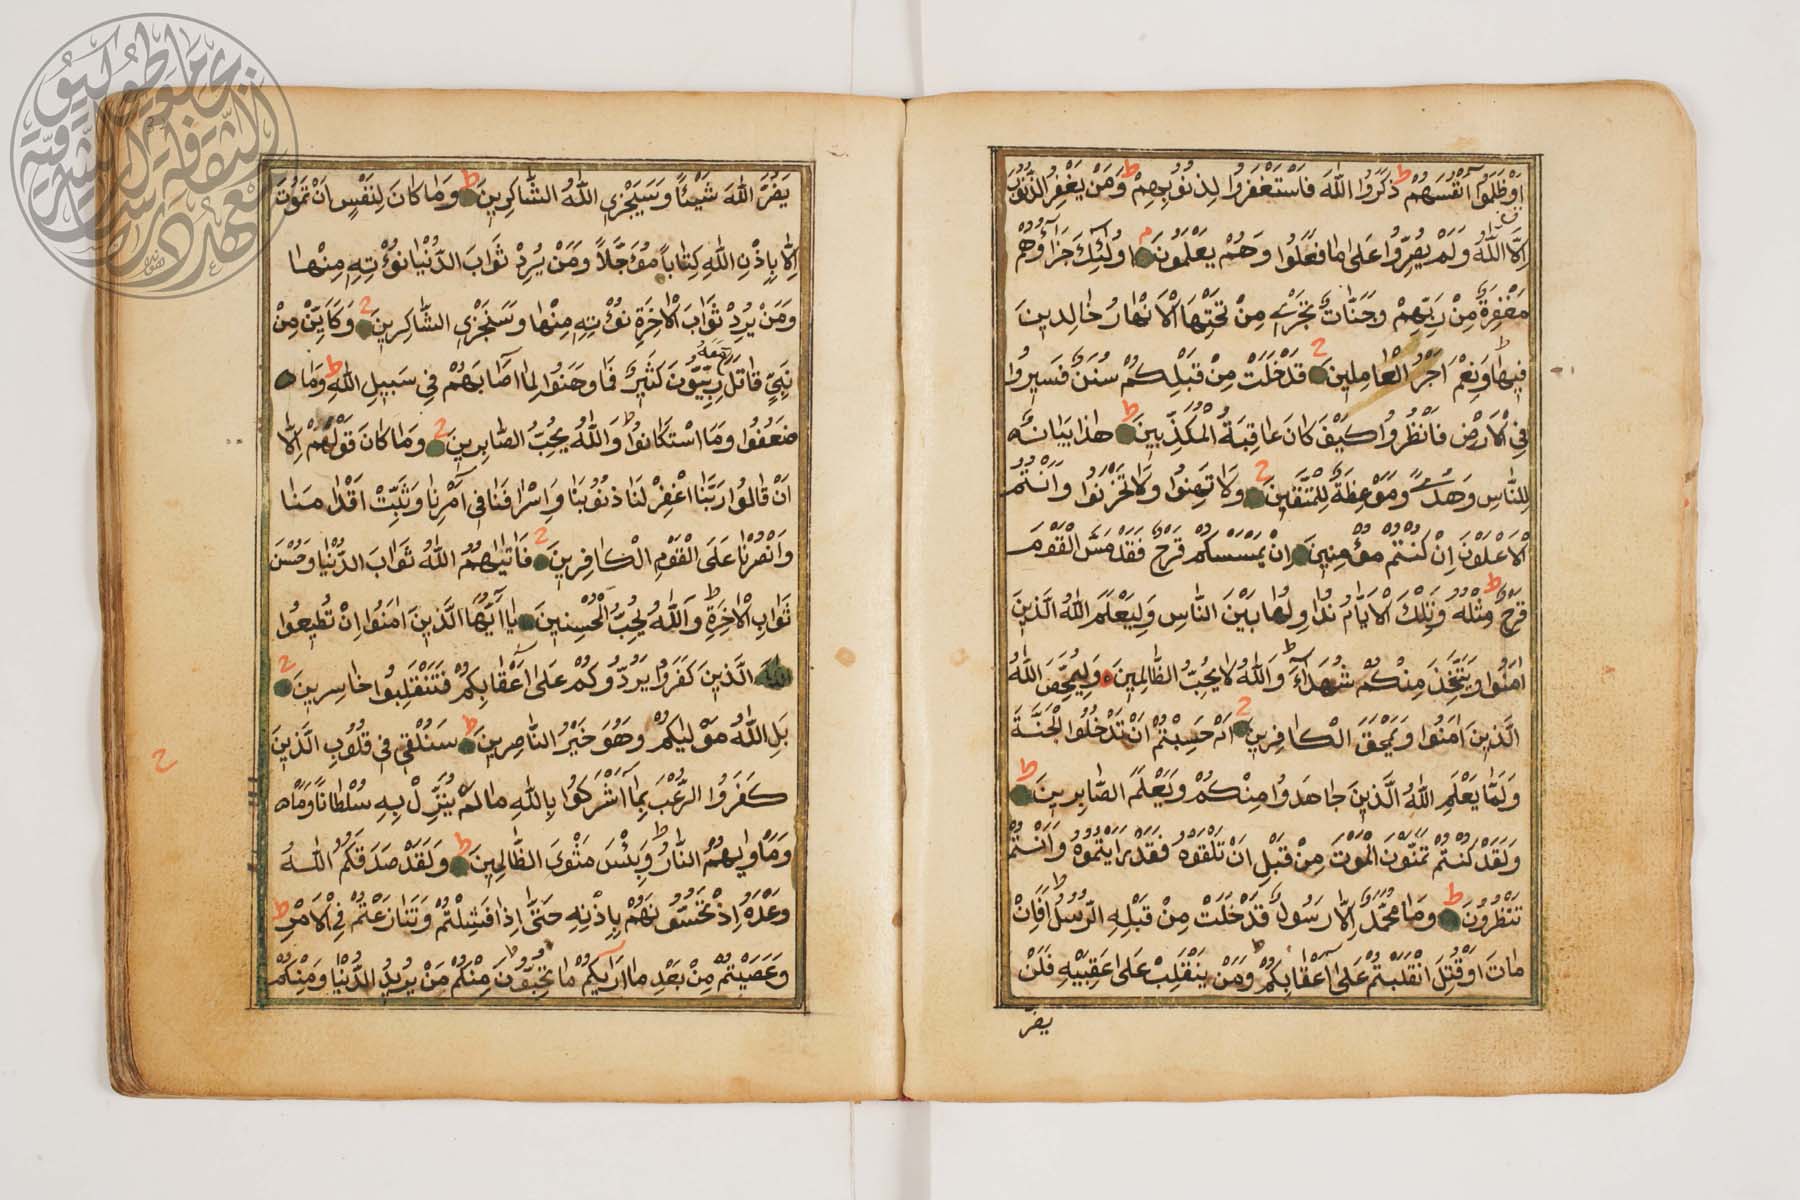 اَوْ ظَلَمُوٓا اَنْفُسَهُمْ ذَكَرُوا اللّٰهَ فَاسْتَغْفَرُوا لِذُنُوبِهِمْ ط وَمَنْ يَغْفِرُ الذُّنُوبَ
اِلَّا اللّٰهُ وَلَمْ يُصِرُّوا عَلٰى مَا فَعَلُوا وَهُمْ يَعْلَمُونَ م اُولٰٓئِكَ جَزَٓاؤُهُمْ
مَغْفِرَةٌ مِنْ رَبِّهِمْ وَجَنَّاتٌ تَجْرِي مِنْ تَحْتِهَا الْاَنْهَارُ خَالِدِينَ
فِيهَا ط وَنِعْمَ اَجْرُ الْعَامِلِينَ قَدْ خَلَتْ مِنْ قَبْلِكُمْ سُنَنٌ فَسِيرُوا
فِي الْاَرْضِ فَانْظُرُوا كَيْفَ كَانَ عَاقِبَةُ الْمُكَذِّبِينَ ط هٰذَا بَيَانٌ
لِلنَّاسِ وَهُدًى وَمَوْعِظَةٌ لِلْمُتَّقِينَ وَلَا تَهِنُوا وَلَا تَحْزَنُوا وَاَنْتُمُ
الْاَعْلَوْنَ اِنْ كُنْتُمْ مُؤْمِنِينَ اِنْ يَمْسَسْكُمْ قَرْحٌ فَقَدْ مَسَّ الْقَوْمَ
قَرْحٌ مِثْلُهُ ط وَتِلْكَ الْاَيَّامُ نُدَاوِلُهَا بَيْنَ النَّاسِ وَلِيَعْلَمَ اللّٰهُ الَّذِينَ
اٰمَنُوا وَيَتَّخِذَ مِنْكُمْ شُهَدَٓاءَ ط وَاللّٰهُ لَا يُحِبُّ الظَّالِمِينَ وَلِيُمَحِّصَ اللّٰهُ
الَّذِينَ اٰمَنُوا وَيَمْحَقَ الْكَافِرِينَ اَمْ حَسِبْتُمْ اَنْ تَدْخُلُوا الْجَنَّةَ
وَلَمَّا يَعْلَمِ اللّٰهُ الَّذِينَ جَاهَدُوا مِنْكُمْ وَيَعْلَمَ الصَّابِرِينَ ط
وَلَقَدْ كُنْتُمْ تَمَنَّوْنَ الْمَوْتَ مِنْ قَبْلِ اَنْ تَلْقَوْهُ فَقَدْ رَاَيْتُمُوهُ وَاَنْتُمْ
تَنْظُرُونَ ط وَمَا مُحَمَّدٌ اِلَّا رَسُولٌ قَدْ خَلَتْ مِنْ قَبْلِهِ الرُّسُلُ ط اَفَاِنْ
مَاتَ اَوْ قُتِلَ انْقَلَبْتُمْ عَلٰٓى اَعْقَابِكُمْ ط وَمَنْ يَنْقَلِبْ عَلٰى عَقِبَيْهِ فَلَنْ
يضر
يَضُرَّ اللّٰهَ شَيْـًٔا وَسَيَجْزِي اللّٰهُ الشَّاكِرِينَ ط وَمَا كَانَ لِنَفْسٍ اَنْ تَمُوتَ
اِلَّا بِاِذْنِ اللّٰهِ كِتَاباً مُؤَجَّلاً وَمَنْ يُرِدْ ثَوَابَ الدُّنْيَا نُؤْتِهِ مِنْهَا
وَمَنْ يُرِدْ ثَوَابَ الْاٰخِرَةِ نُؤْتِهِ مِنْهَا وَسَنَجْزِي الشَّاكِرِينَ وَكَاَيِّنْ مِنْ
نَبِيٍّ قَاتَلَ مَعَهُ رِبِّيُّونَ كَثِيرٌ فَمَا وَهَنُوا لِمَٓا اَصَابَهُمْ فِي سَبِيلِ اللّٰهِ ط وَمَا
ضَعُفُوا وَمَا اسْتَكَانُوا ط وَاللّٰهُ يُحِبُّ الصَّابِرِينَ وَمَا كَانَ قَوْلَهُمْ اِلَّا
اَنْ قَالُوا رَبَّنَا اغْفِرْ لَنَا ذُنُوبَنَا وَاِسْرَافَنَا فِي اَمْرِنَا وَثَبِّتْ اَقْدَامَنَا
وَانْصُرْنَا عَلَى الْقَوْمِ الْكَافِرِينَ فَاٰتٰيهُمُ اللّٰهُ ثَوَابَ الدُّنْيَا وَحُسْنَ
ثَوَابِ الْاٰخِرَةِ ط وَاللّٰهُ يُحِبُّ الْمُحْسِنِينَ يَٓا اَيُّهَا الَّذِينَ اٰمَنُوا اِنْ تُطِيعُوا
الَّذِينَ كَفَرُوا يَرُدُّوكُمْ عَلٰٓى اَعْقَابِكُمْ فَتَنْقَلِبُوا خَاسِرِينَ
بَلِ اللّٰهُ مَوْلٰيكُمْ وَهُوَ خَيْرُ النَّاصِرِينَ ط سَنُلْقِي فِي قُلُوبِ الَّذِينَ
كَفَرُوا الرُّعْبَ بِمَٓا اَشْرَكُوا بِاللّٰهِ مَا لَمْ يُنَزِّلْ بِهِ سُلْطَاناً
وَمَاْوٰيهُمُ النَّارُ ط وَبِئْسَ مَثْوَى الظَّالِمِينَ ط وَلَقَدْ صَدَقَكُمُ اللّٰهُ
وَعْدَهُ اِذْ تَحُسُّونَهُمْ بِاِذْنِهِ حَتّٰٓى اِذَا فَشِلْتُمْ وَتَنَازَعْتُمْ فِي الْاَمْرِ ط
وَعَصَيْتُمْ مِنْ بَعْدِ مَٓا اَرٰيكُمْ مَا تُحِبُّونَ ط مِنْكُمْ مَنْ يُرِيدُ الدُّنْيَا وَمِنْكُمْ